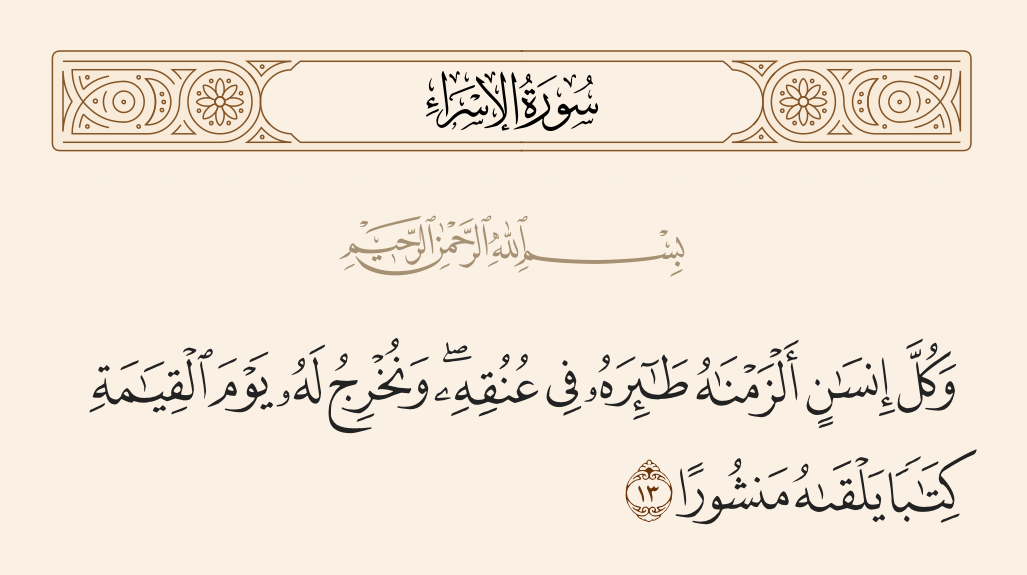 سُورَةُ الإِسْرَاءِ
بِسْمِ ٱللَّهِ ٱلرَّحْمَٰنِ ٱلرَّحِيمِ
وَكُلَّ إِنسَـٰنٍ أَلْزَمْنَـٰهُ طَـٰٓئِرَهُۥ فِى عُنُقِهِۦ ۖ وَنُخْرِجُ لَهُۥ يَوْمَ ٱلْقِيَـٰمَةِ
كِتَـٰبًا يَلْقَىٰهُ مَنشُورًا ١٣